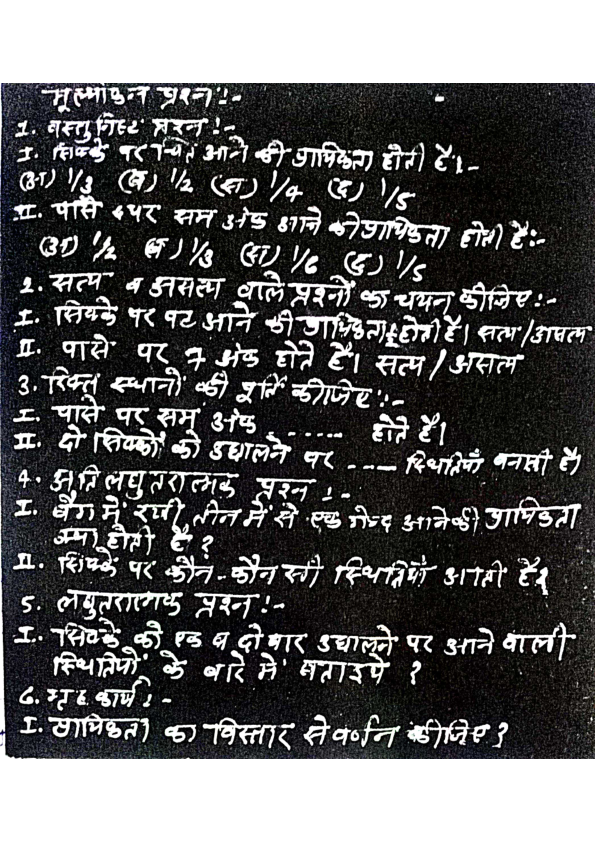 मूल्यांकन प्रश्न :-
1. वस्तुनिष्ठ प्रश्न :-
I. सिक्के पर चित आने की प्रायिकता होती है। -
(अ) 1/3 (ब) 1/2 (स) 1/4 (द) 1/5
II. पासे पर सम अंक आने की प्रायिकता होती है:-
(अ) 1/2 (ब) 1/3 (स) 1/6 (द) 1/5
2. सत्य व असत्य वाले प्रश्नों का चयन कीजिए :-
I. सिक्के पर पट आने की प्रायिकता होती है। सत्य/असत्य
II. पासे पर 7 अंक होते है। सत्य/असत्य
3. रिक्त स्थानों की पूर्ति कीजिए :-
I. पासे पर सम अंक ------ होते है।
II. दो सिक्कों को उछालने पर ---- स्थितियाँ बनती है।
4. अति लघुतरात्मक प्रश्न :-
I. बैग में रखी तीन में से एक गेन्द आने की प्रायिकता
क्या होती है ?
II. सिक्के पर कौन-कौन सी स्थितियाँ आती है?
5. लघुतरात्मक प्रश्न :-
I. सिक्के को एक व दो बार उछालने पर आने वाली
स्थितियों के बारे में बताइये ?
6. गृह कार्य :-
I. प्रायिकता का विस्तार से वर्णन कीजिए ?